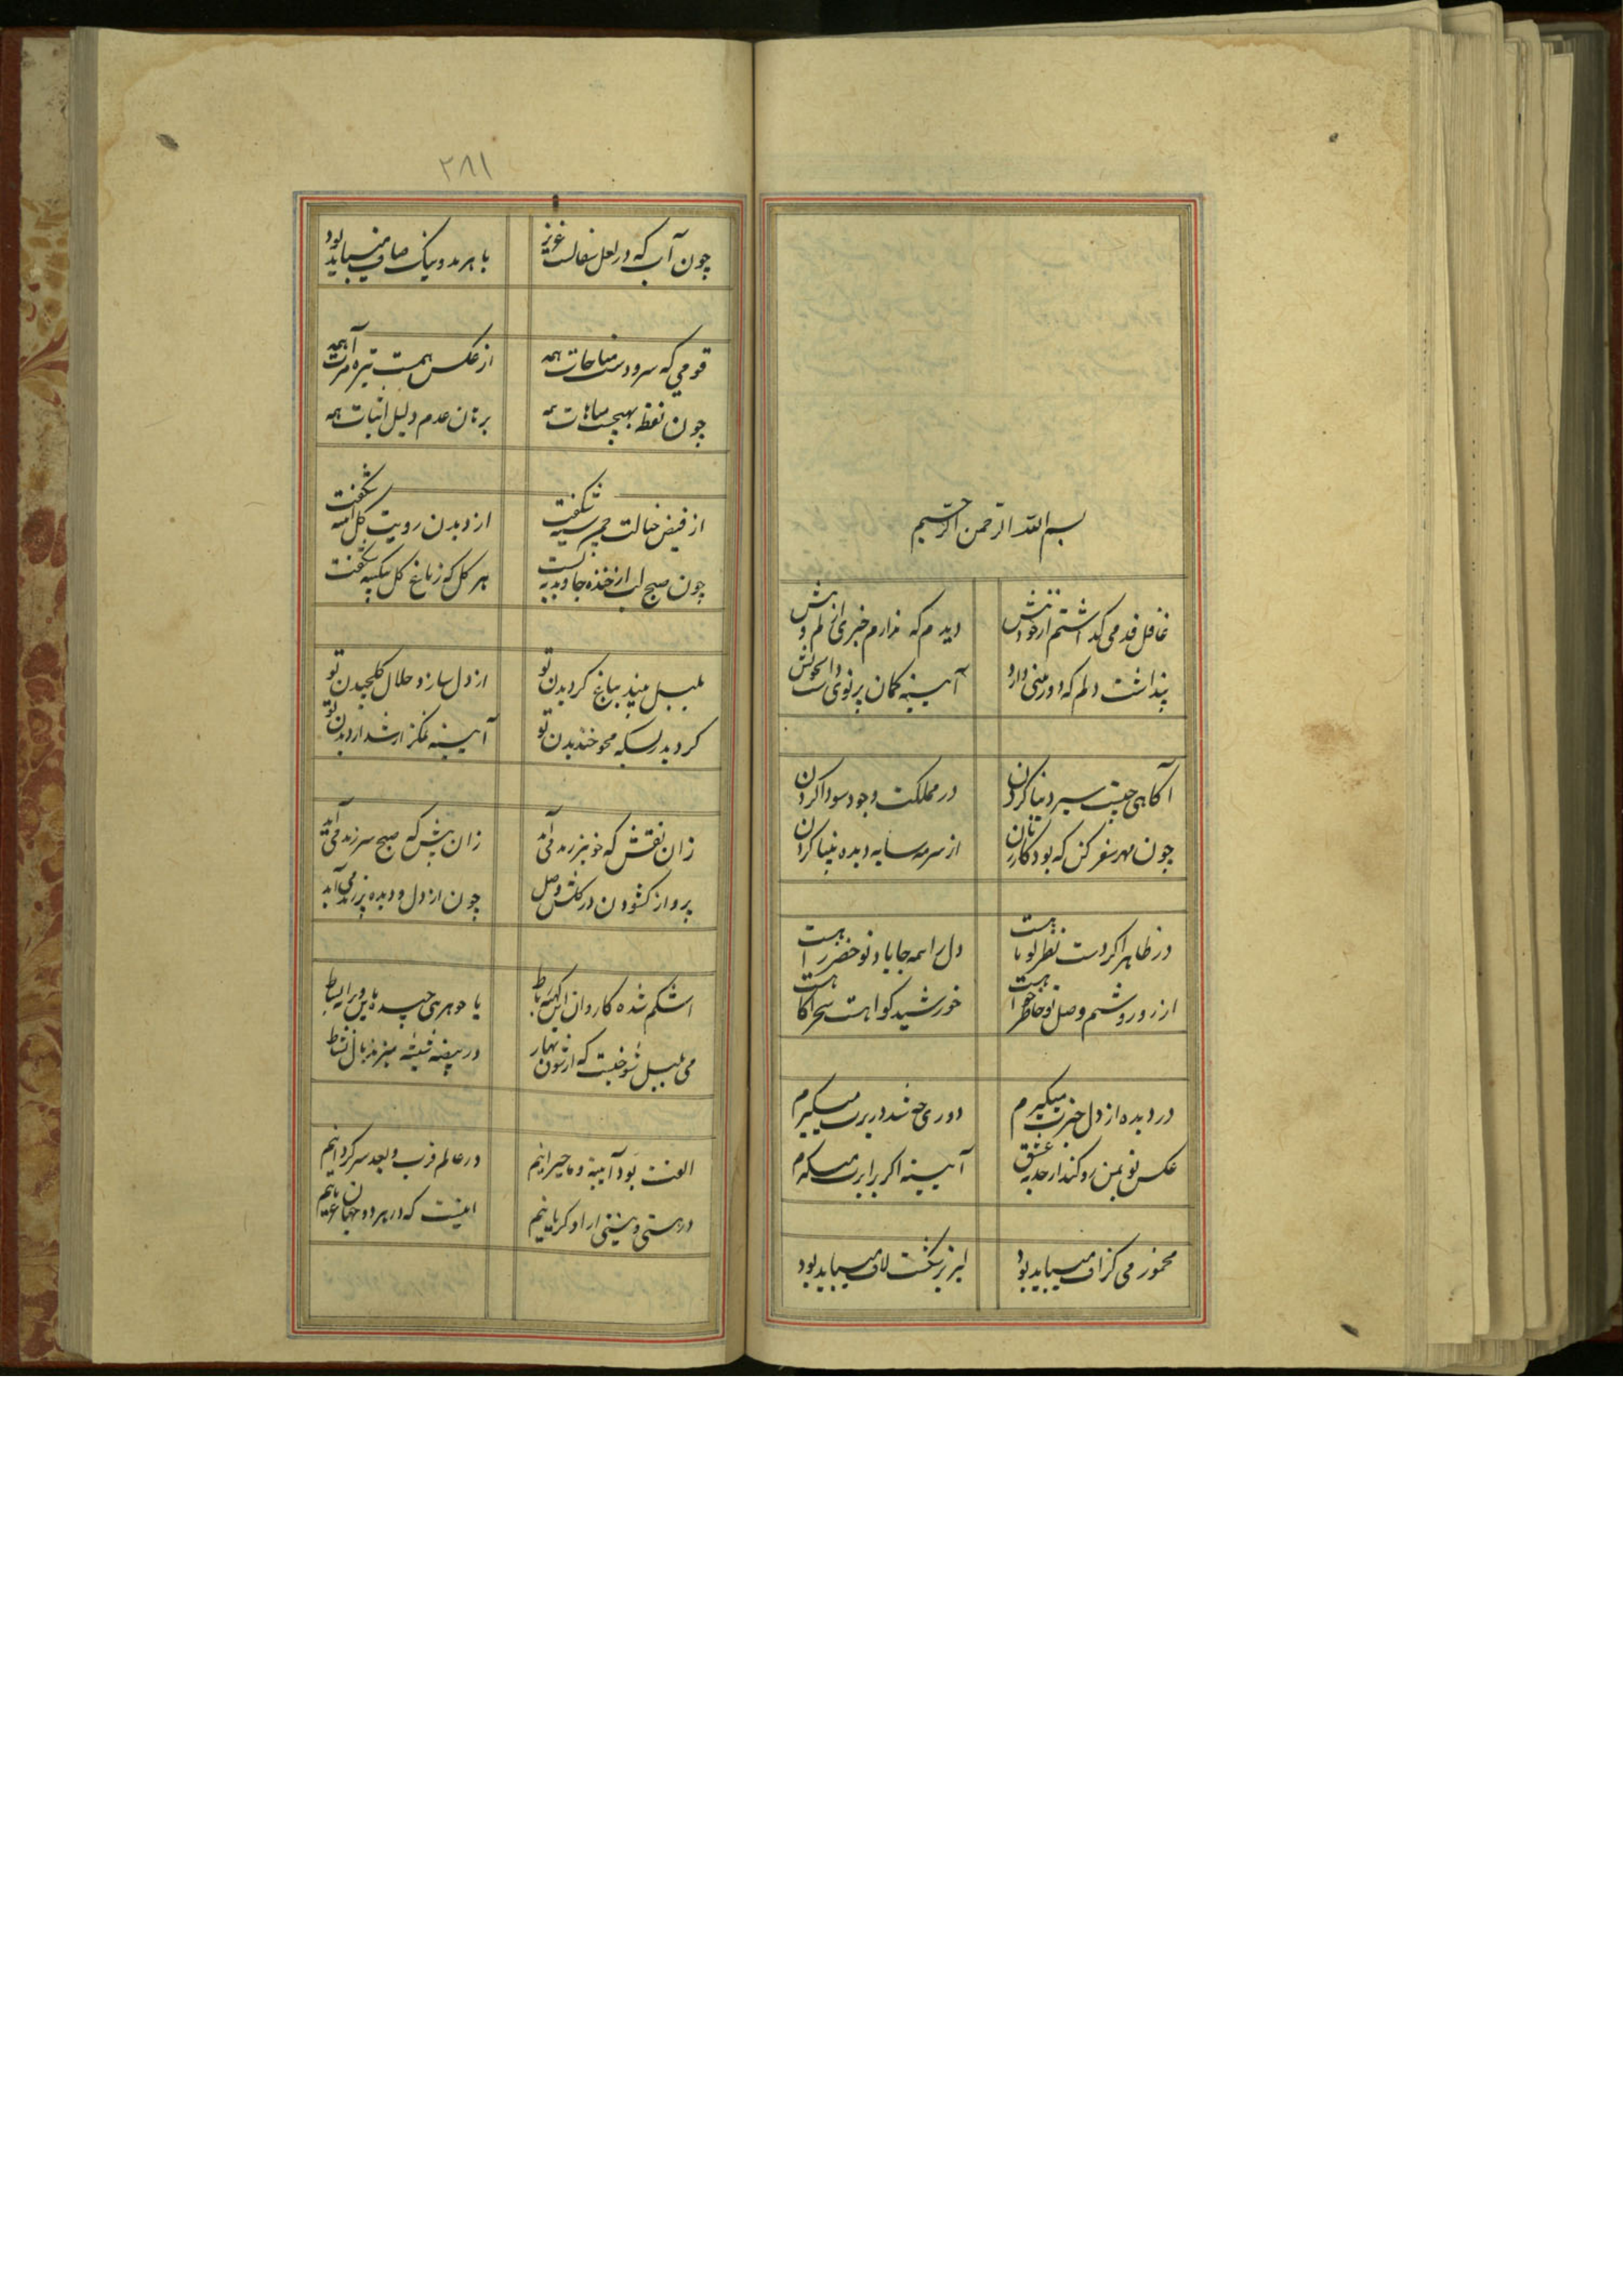 بسم الله الرحمن الرحیم
غافل قدمی که داشتم از خود پیش دیدم که ندارم خبری از دل ریش
پنداشت دلم که دوربینی دارد آیینه کمان پرتوی داشت ز خویش
آکاهی چیست سیر دنیا کردن در مملکت وجود سودا کردن
چون مهر سفر کن که بود کار زنان از سرمه سایه دیده بینا کردن
در ظاهر اکر دست نظر کوتاهست دل را همه جا یاد تو خضر راهست
از روز روشنم وصل تو خاطر خواهست خورشید کواهست سحر آکاهست
در دیده از دل خبرت میکیرم دوری چه شد در برت میکیرم
عکس تو بمن رو کند از جذبه عشق آیینه اکر برابرت میکیرم
مخمور می کزاف میباید بود لبریز شکست لاف میباید بود
۲۸۱
چون آب که در لعل و سفالست عزیز با هر بد و نیک صاف میباید بود
قومی که سرودست مناجات همه از عکس همست تیره مرآت همه
چون نقطه بهیچست مباهات همه برهان عدم دلیل اثبات همه
از فیض خیالت چمن سینه شکفت از دیدن رویت کل آیینه شکفت
چون صبح لب از خنده جاوید نبست هر کل که ز باغ کل شکفت
بلبل بیند بباغ کردیدن تو از دل سازد حلال کلچیدن تو
کردید ز بسکه محو خندیدن تو آیینه نمکزار شد از دیدن تو
زان نقش که خوبتر ز می آید زان پیش که صبح سر زند می آید
پرواز کشودن در کلشن وصل چون از دل و دیده پر زند می آید
اشکم شده کاروان این کهنه رباط یا جوهری چیده باین ویرانه بساط
می بلبل شوخیست که از شوق بهار در بیضه شیشه میزند بال نشاط
الفت بود آیینه و ما حیرانیم در عالم قرب و بعد سرکردانیم
در هستی و نیستی ازو کریانیم اینست که در هر دو جهان عریانیم